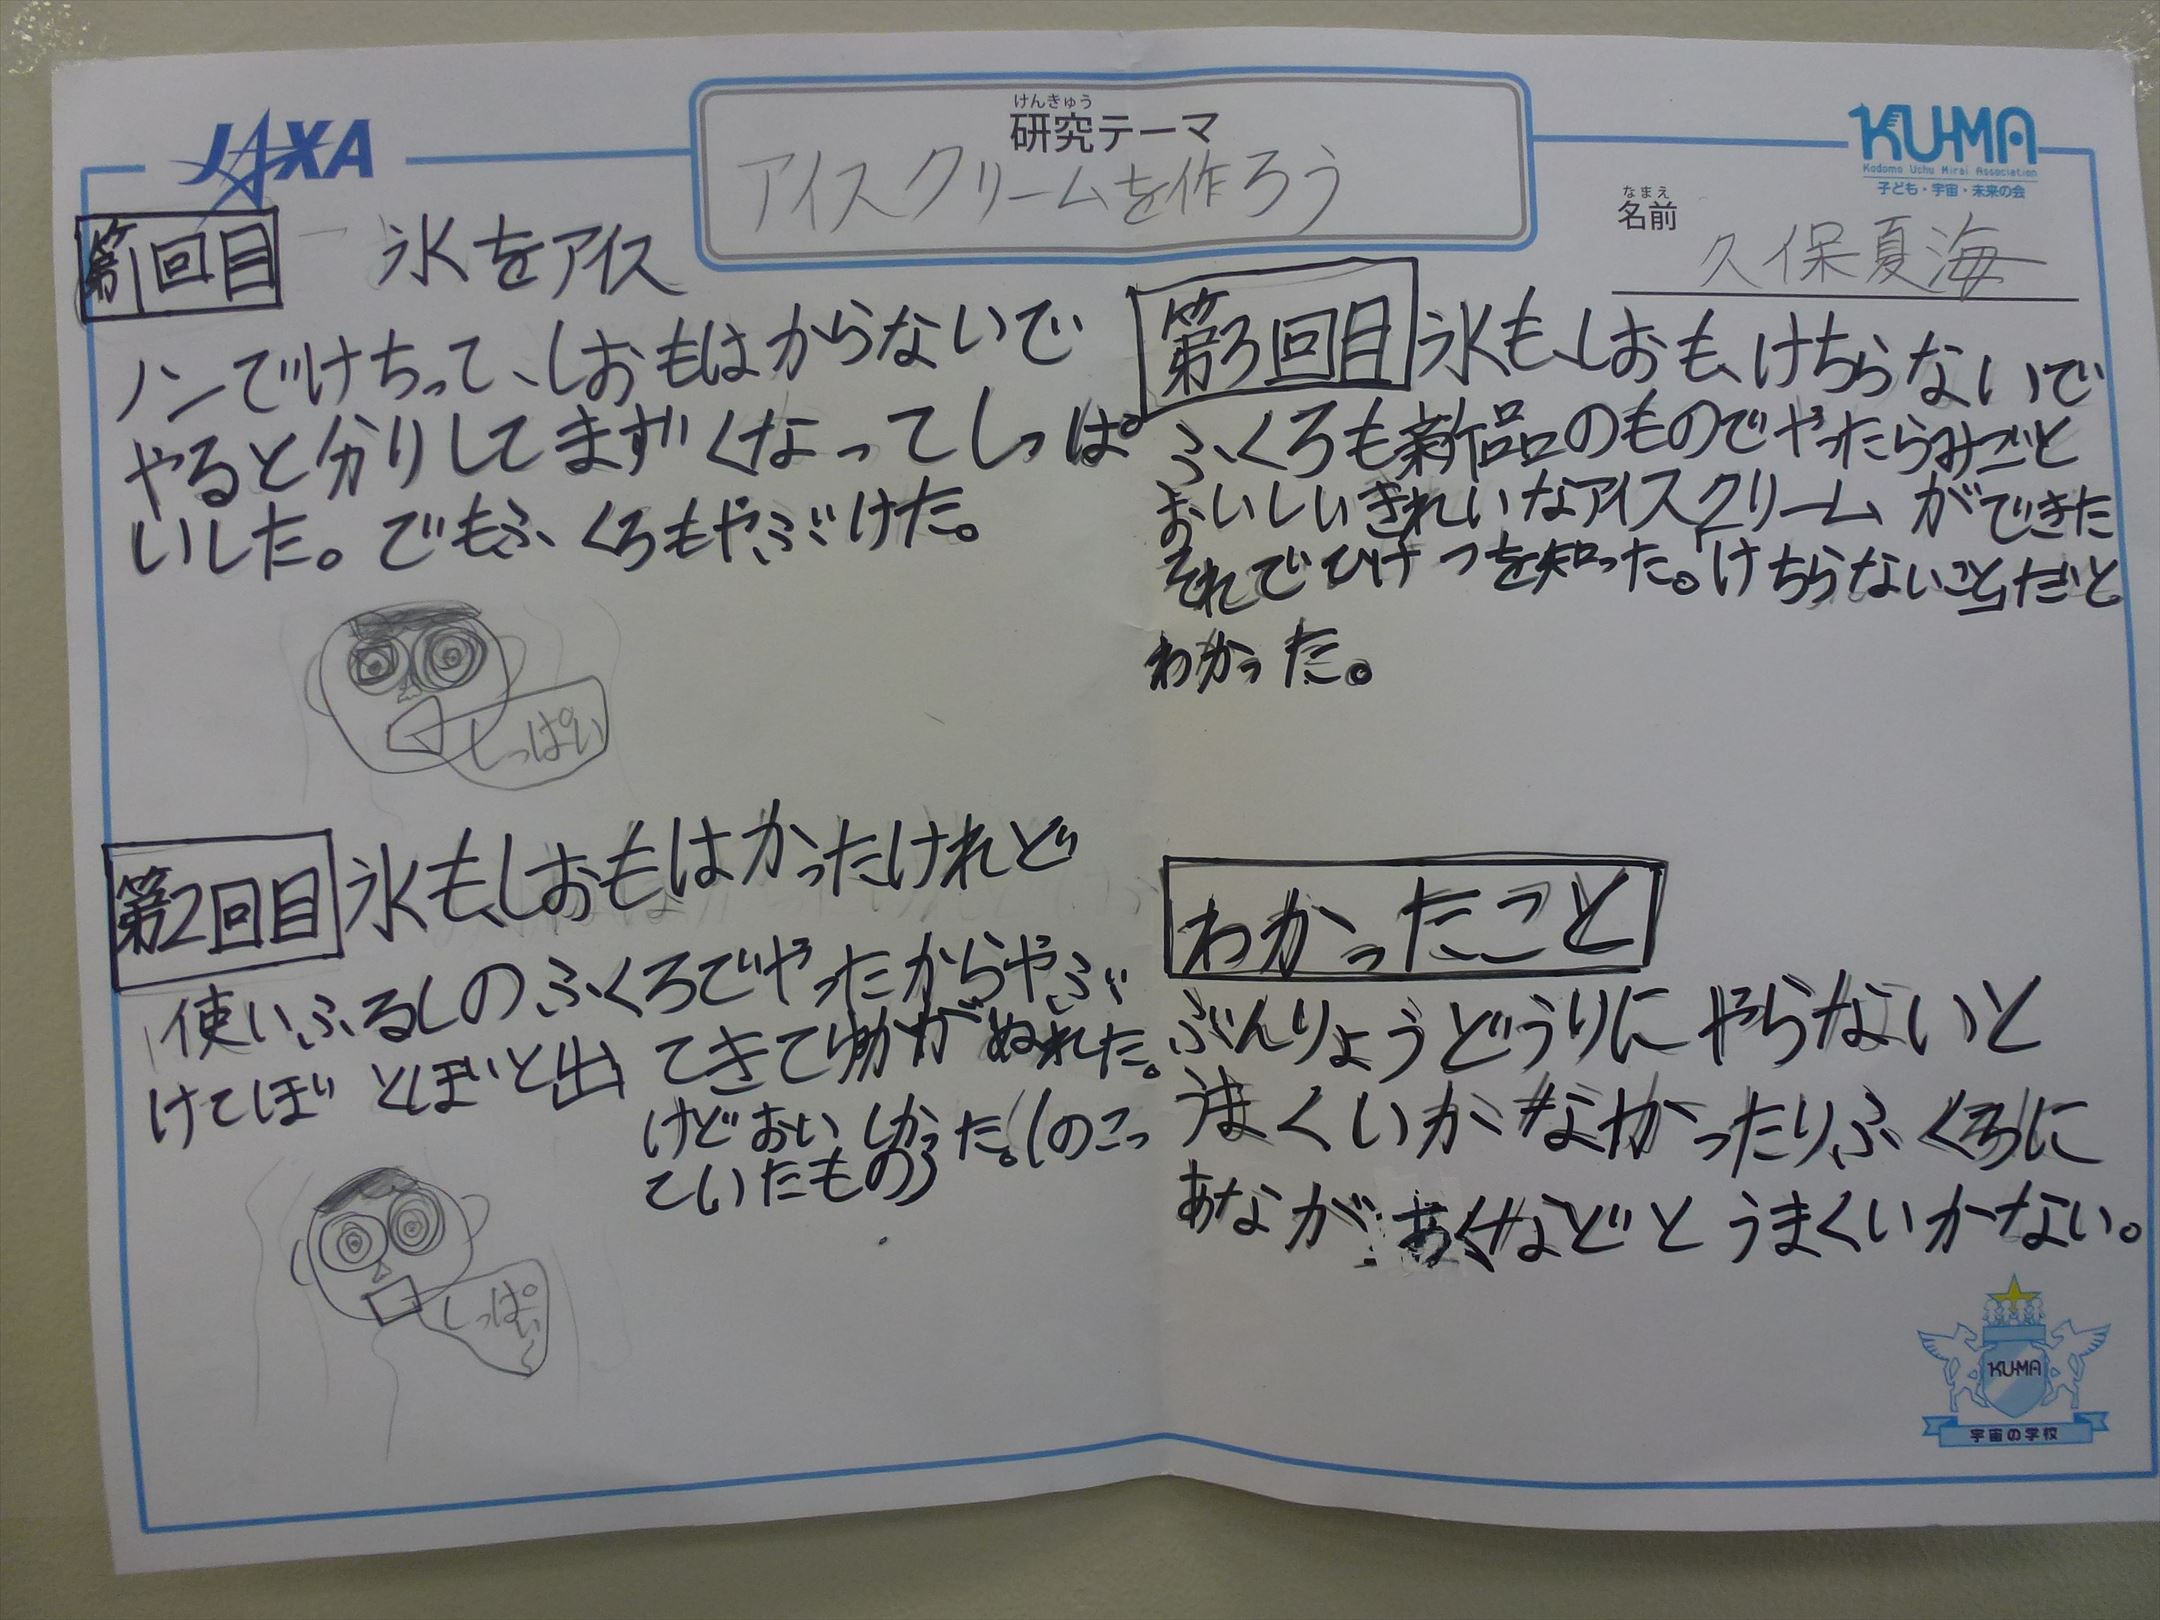 JAXA
けんきゅう
研究テーマ
アイスクリームを作ろう
KU-MA
Kodomo Uchu Mirai Association
子ども・宇宙・未来の会
なまえ
名前
久保夏海
第1回目 氷をアイス
ノンでけちって、しおもはからないで
やると分りしてまずくなってしっぱ。
いした。でもふくろもやぶけた。
しっぱい
第2回目 氷も、しおもはかったけれど
使いふるしのふくろでやったからやぶ
けてぼとぼと出てきて幼がぬれた。
けどおいしかった。(のこっ
ていたもの)
しっぱい〜
第3回目 氷も、しおも、けちらないで
ふくろも新品のものでやったらみごと
おいしいきれいなアイスクリームができた
それでひけつを知った。「けちらないこと」だと
わかった。
わかったこと
ぶんりょうどうりにやらないと
うまくいかなかったりふくろに
あながあくなどとうまくいかない。
KU-MA
宇宙の学校